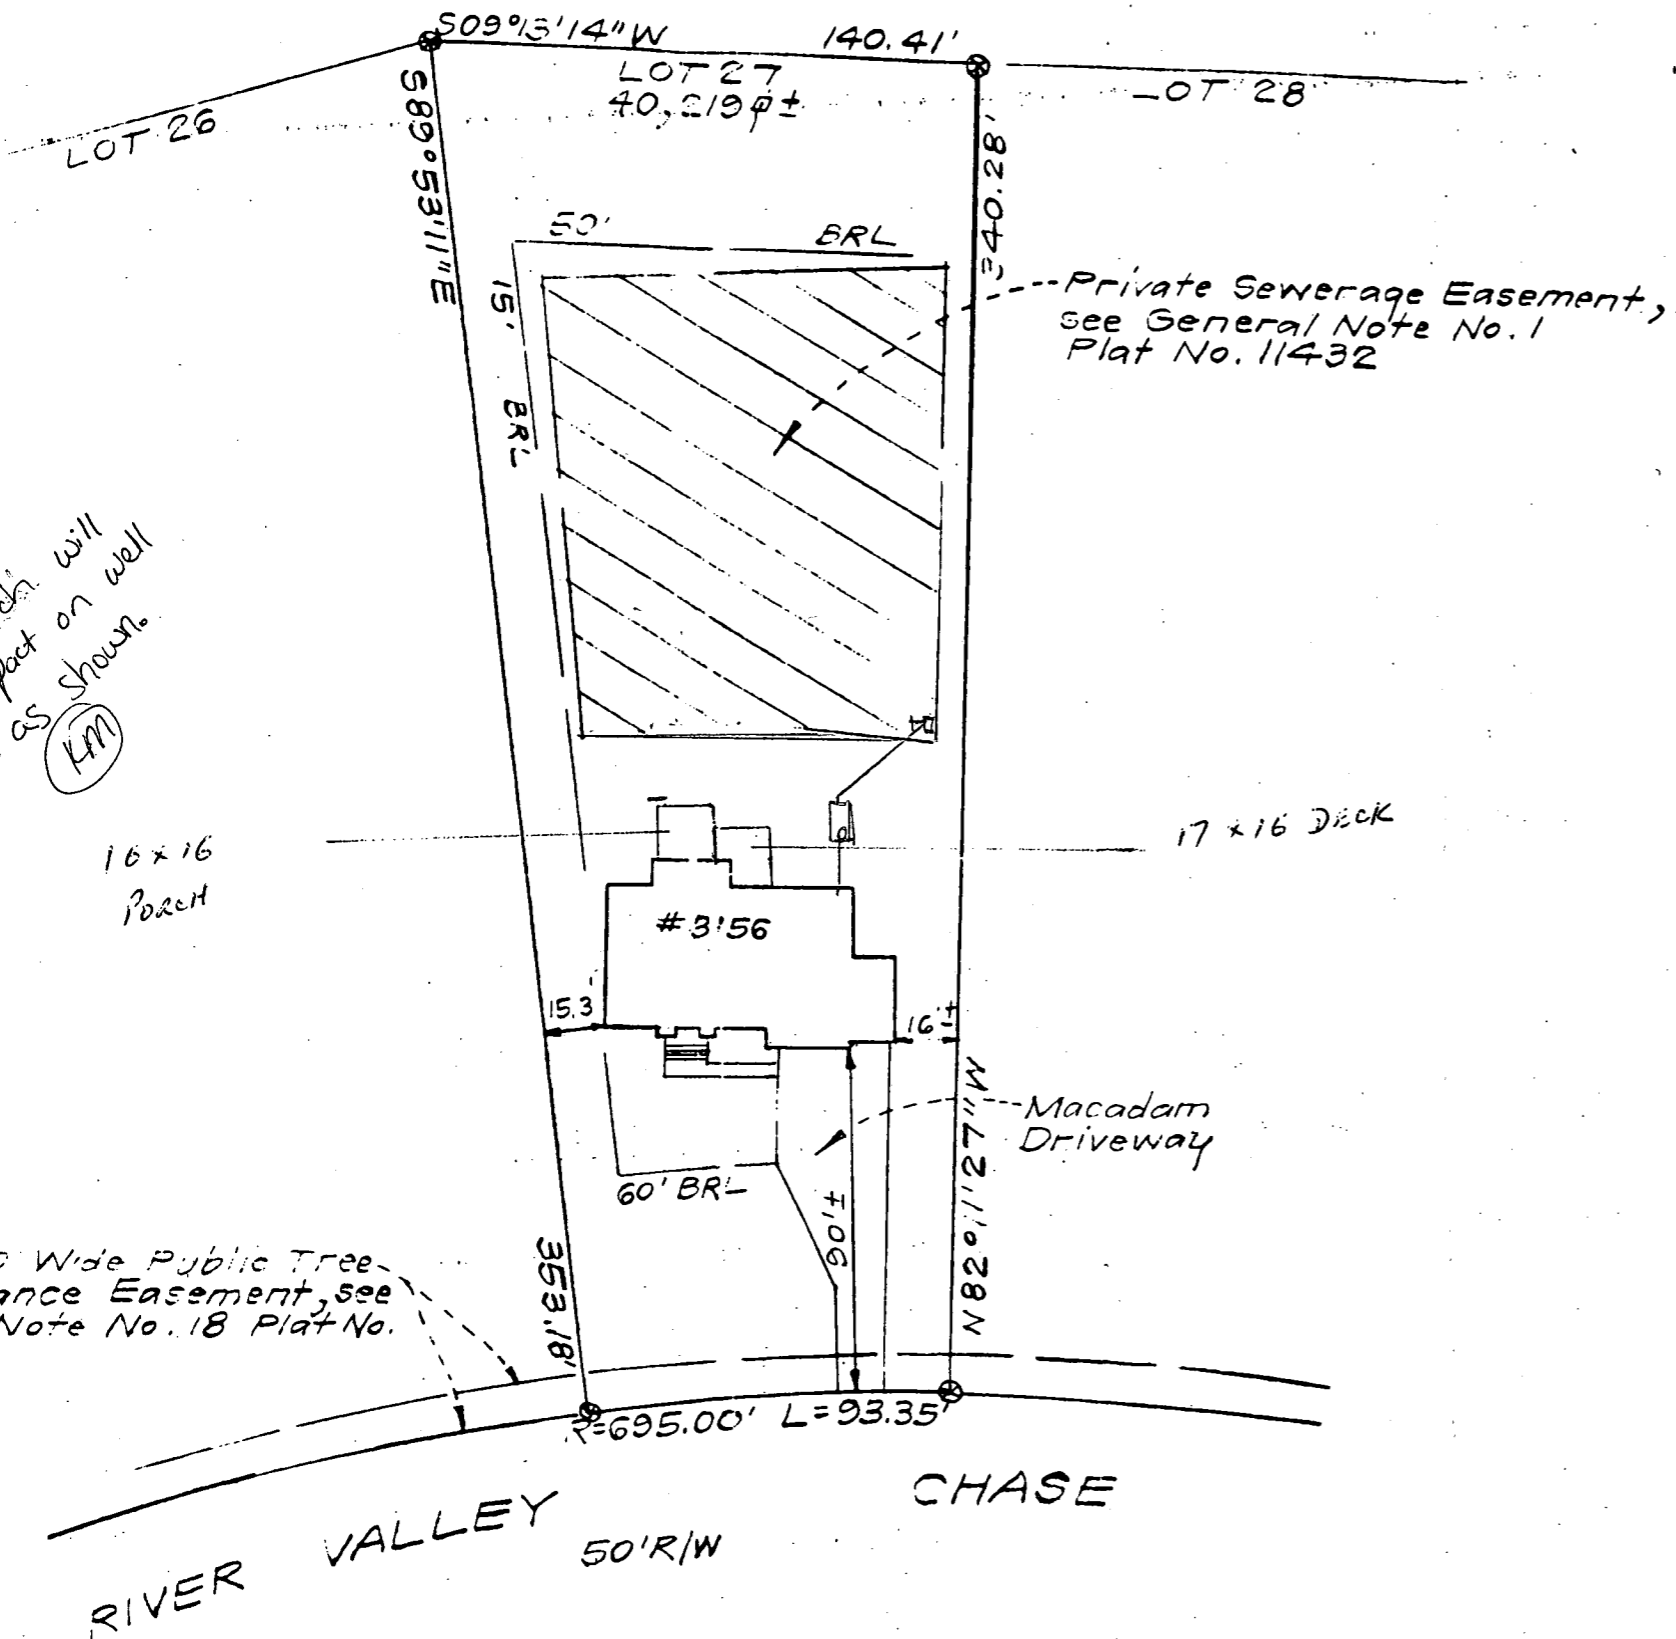 S09°13'14"W 140.41'
LOT 27
40,219 ±
LOT 26
LOT 28
S89°53'11"E
340.28'
50' BRL
15' BRL
Private Sewerage Easement,
see General Note No. 1
Plat No. 11432
will
on well
as shown.
KM
16 x 16
PORCH
17 x 16 DECK
#3156
15.3
16'±
Macadam
Driveway
60' BRL
90'±
N82°11'27"W
353.18'
Wide Public Tree
Easement, see
Note No. 18 Plat No.
R=695.00' L=93.35'
RIVER VALLEY CHASE
50' R/W